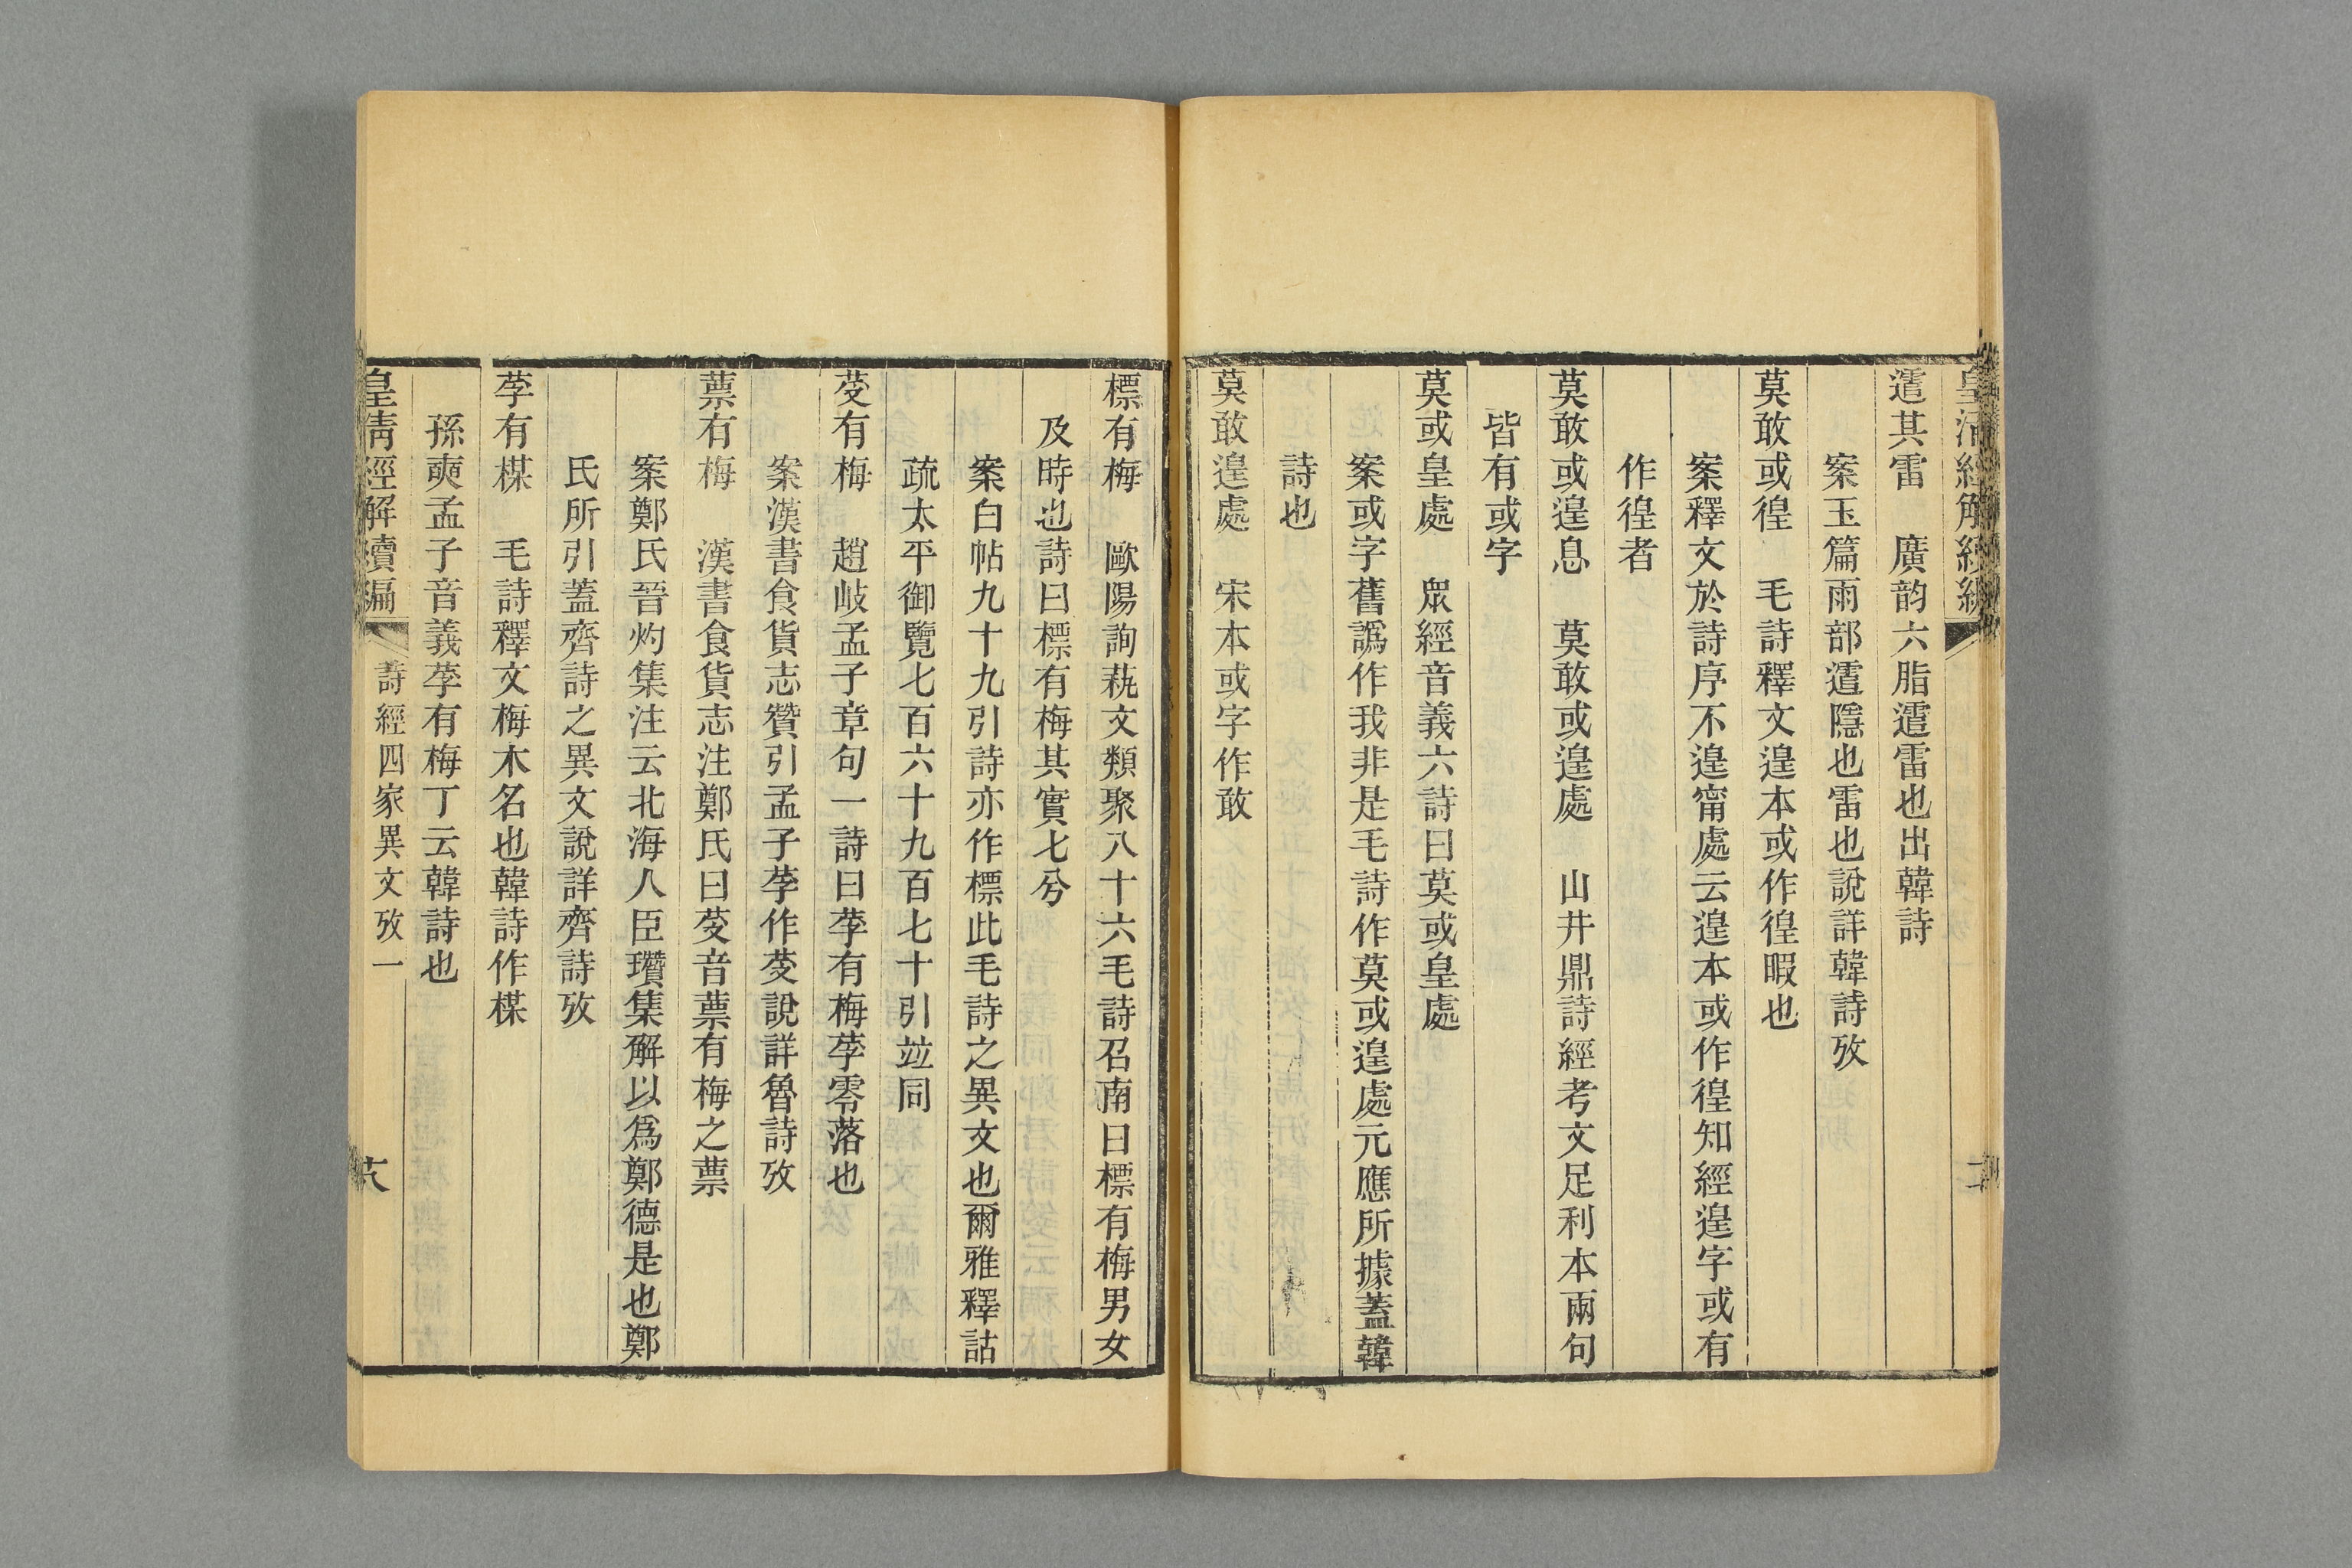 皇清經解續編
䨓其雷　廣韵六脂䨓雷也出韓詩
案玉篇雨部䨓隱也雷也說詳韓詩攷
莫敢或徨　毛詩釋文遑本或作徨暇也
案釋文於詩序不遑甯處云遑本或作徨知經遑字或有
作徨者
莫敢或遑息　莫敢或遑處　山井鼎詩經考文足利本兩句
皆有或字
莫或皇處　眾經音義六詩曰莫或皇處
案或字舊譌作我非是毛詩作莫或遑處元應所據蓋韓
詩也
莫敢遑處　宋本或字作敢
標有梅　歐陽詢蓺文類聚八十六毛詩召南曰標有梅男女
及時也詩曰標有梅其實七兮
案白帖九十九引詩亦作標此毛詩之異文也爾雅釋詁
疏太平御覽七百六十九百七十引竝同
芆有梅　趙岐孟子章句一詩曰莩有梅莩零落也
案漢書食貨志贊引孟子莩作芆說詳魯詩攷
蔈有梅　漢書食貨志注鄭氏曰芆音蔈有梅之蔈
案鄭氏晉灼集注云北海人臣瓚集解以爲鄭德是也鄭
氏所引蓋齊詩之異文說詳齊詩攷
莩有楳　毛詩釋文梅木名也韓詩作楳
孫奭孟子音義莩有梅丁云韓詩也
皇清經解續編　詩經四家異文攷一